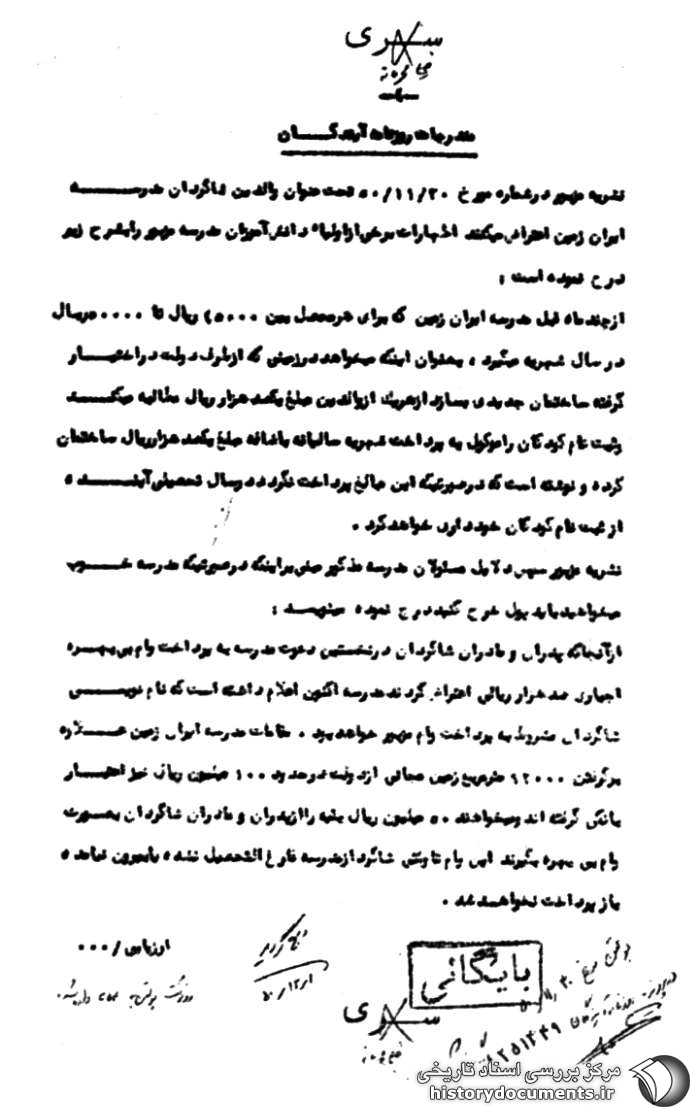 سری
محرمانه
مندرجات روزنامه آیندگان
نشریه مزبور در شماره مورخ ۵۰/۱۱/۳۰ تحت عنوان والدین شاگردان مدرسه
ایران زمین اعتراض میکنند اظهارات برخی از اولیاء دانش آموزان مدرسه مزبور را بشرح زیر
درج نموده است :
از چند ماه قبل مدرسه ایران زمین که برای هر محصل بین ریال تا ریال
در سال شهریه میگیرد ، بعنوان اینکه میخواهد در زمینی که از طرف دولت در اختیار
گرفته ساختمان جدیدی بسازد از هریک از والدین مبلغ یکصد هزار ریال مطالبه میکند
وثبت نام کودکان را موکول به پرداخت شهریه سالیانه باضافه مبلغ یکصد هزار ریال ساختمان
کرده و نوشته است که در صورتیکه این مبالغ پرداخت نگردد در سال تحصیلی آینده
از ثبت نام کودکان خودداری خواهد کرد .
نشریه مزبور سپس دلایل مسئولان مدرسه مذکور مبنی بر اینکه در صورتیکه مدرسه خوب
میخواهید باید پول خرج کنید درج نموده مینویسد :
از آنجائیکه پدران و مادران شاگردان در نخستین دعوت مدرسه به پرداخت وام بی بهره
اجباری صد هزار ریالی اعتراض کردند مدرسه اکنون اعلام داشته است که نام نویسی
شاگردان مشروط به پرداخت وام مزبور خواهد بود . مقامات مدرسه ایران زمین علاوه
بر گرفتن ۱۲۰۰۰ متر مربع زمین مجانی از دولت در حدود ۱۰۰ میلیون ریال نیز اعتبار
بانکی گرفته اند و میخواهند ۵۰ میلیون ریال بقیه را از پدران و مادران شاگردان بصورت
وام بی بهره بگیرند این وام تا وقتی شاگرد از مدرسه فارغ التحصیل نشده یا بیرون نیامده
باز پرداخت نخواهد شد .
ارزیابی / ۰۰۰
۵۰/۱۲/۱
بایگانی
سری
مرکز بررسی اسناد تاریخی
historydocuments.ir